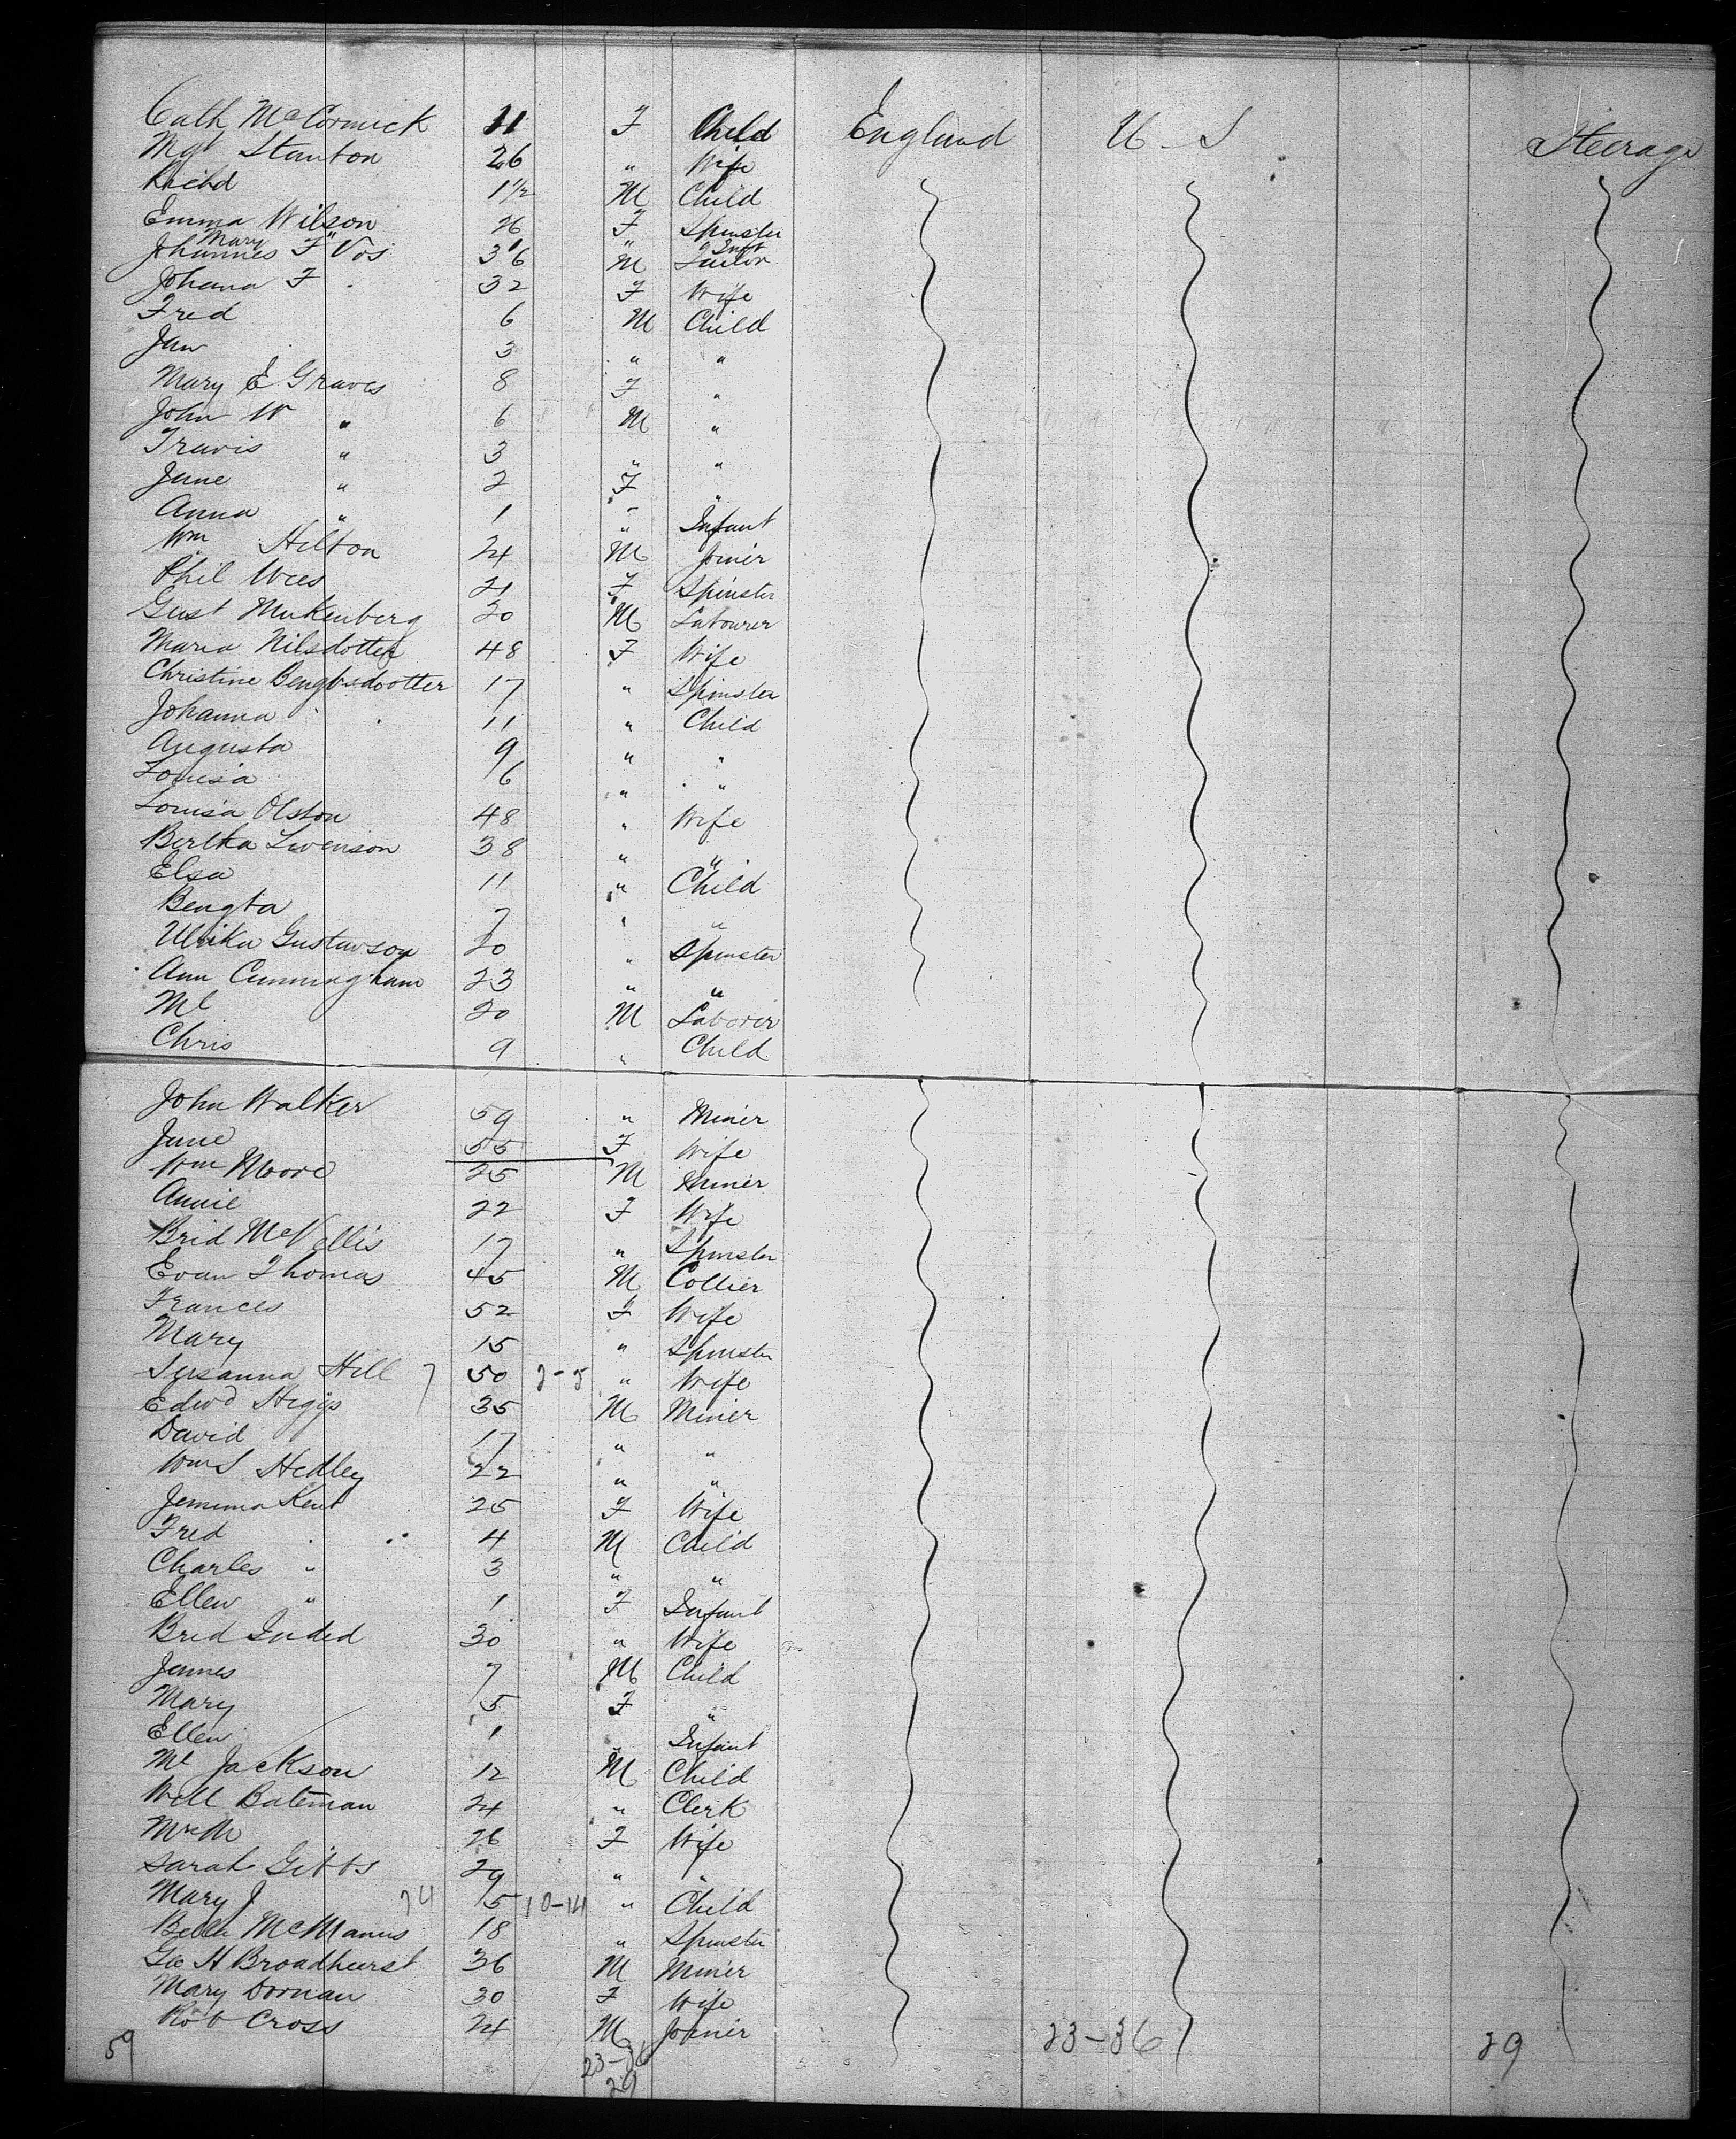 Cath McCormick 11 F Child England U S Steerage
Mgt Stanton 26 " Wife
Richd 1 1/2 M Child
Emma Wilson 26 F Spinster
Mary " 1 " Inft
Johannes F Vos 36 M Tailor
Johana F 32 F Wife
Fred 6 M Child
Jan 3 " "
Mary E Graves 8 F "
John W " 6 M "
Travis " 3 " "
Jane " 2 F "
Anna " 1 " Infant
Wm Hilton 24 M Joiner
Phil Wees 21 F Spinster
Gust Mukenberg 20 M Labourer
Maria Nilsdotter 48 F Wife
Christine Bengtsdotter 17 " Spinster
Johanna 11 " Child
Augusta 9 " "
Louisa 6 " "
Louisa Olston 48 " Wife
Bertha Swenson 38 " "
Elsa 11 " Child
Bengta 7 " "
Ulrika Gustavson 20 " Spinster
Ann Cunningham 23 " "
Ml 20 M Laborer
Chris 9 " Child
John Walker 59 " Miner
Jane 55 F Wife
Wm Moore 25 M Miner
Annie 22 F Wife
Brid McVellis 17 " Spinster
Evan Thomas 45 M Collier
Frances 52 F Wife
Mary 15 " Spinster
Susanna Hill 7 50 " Wife
Edwd Higgs 35 M Miner
David 17 " "
Wm S Hedley 22 " "
Jemima Kent 25 F Wife
Fred " 4 M Child
Charles " 3 " "
Ellen " 1 F Infant
Brid 30 " Wife
James 7 M Child
Mary 5 F "
Ellen 1 " Infant
Ml Jackson 12 M Child
Will Bateman 24 " Clerk
Mrs 26 F Wife
Sarah Gibbs 29 " "
Mary J 5 10-14 " Child
Bella McManus 18 " Spinster
Geo H Broadhurst 36 M Miner
Mary Dornan 30 F Wife
Rob Cross 24 M Joiner
59 23-36 23-36 29
29